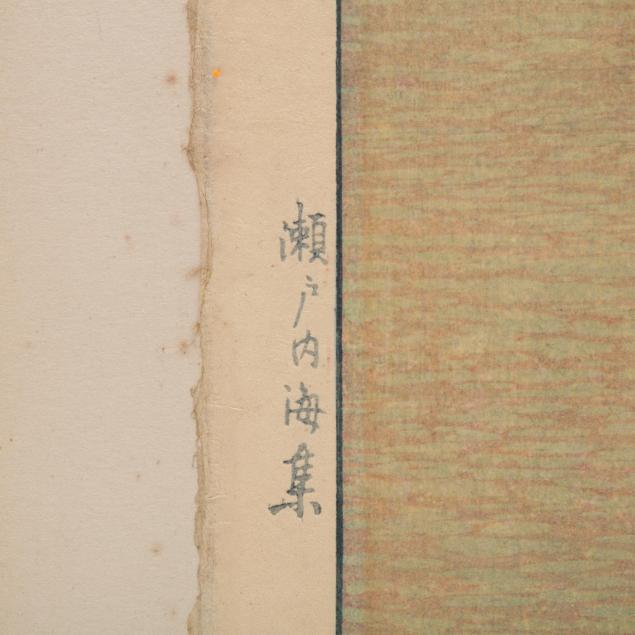 瀬戸内海集